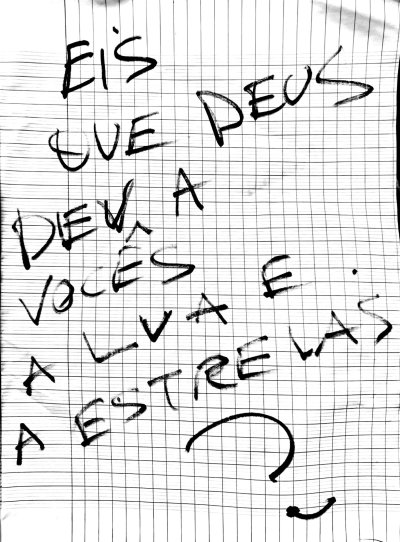 EIS
QUE DEUS
DEU A
VOCÊS
A LUA E
A ESTRELAS
?